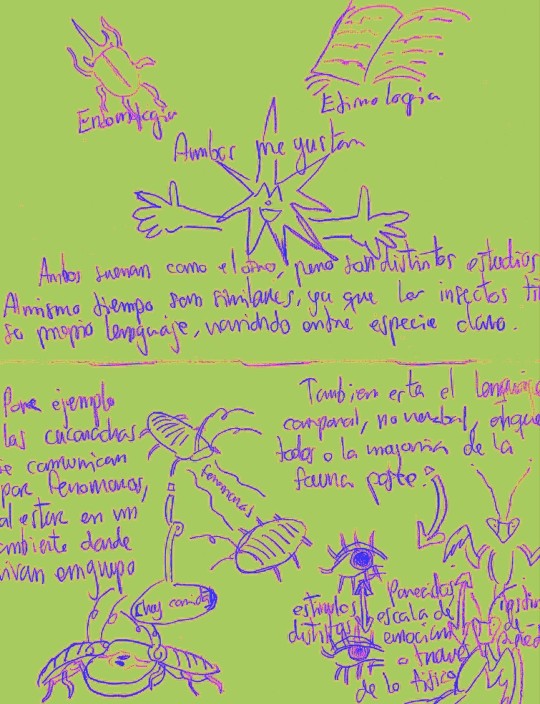 Entomologia
Etimologia
Ambos me gustan
Ambos suenan como el otro, pero son distintos estudios
Almismo tiempo son similares, ya que los insectos
su propio lenguaje, variando entre especie claro.
Para ejemplo
las cucarachas
se comunican
por fenomonas,
al estar en un
ambiente donde
vivan en grupo
fenomonas
¿hay comida?
Tambien esta el lenguaje
corporal, no verbal, en que
todos o la mayoria de la
fauna
estimulos
distintos
Parecidos
escala de
emocion
a traves
de lo fisico